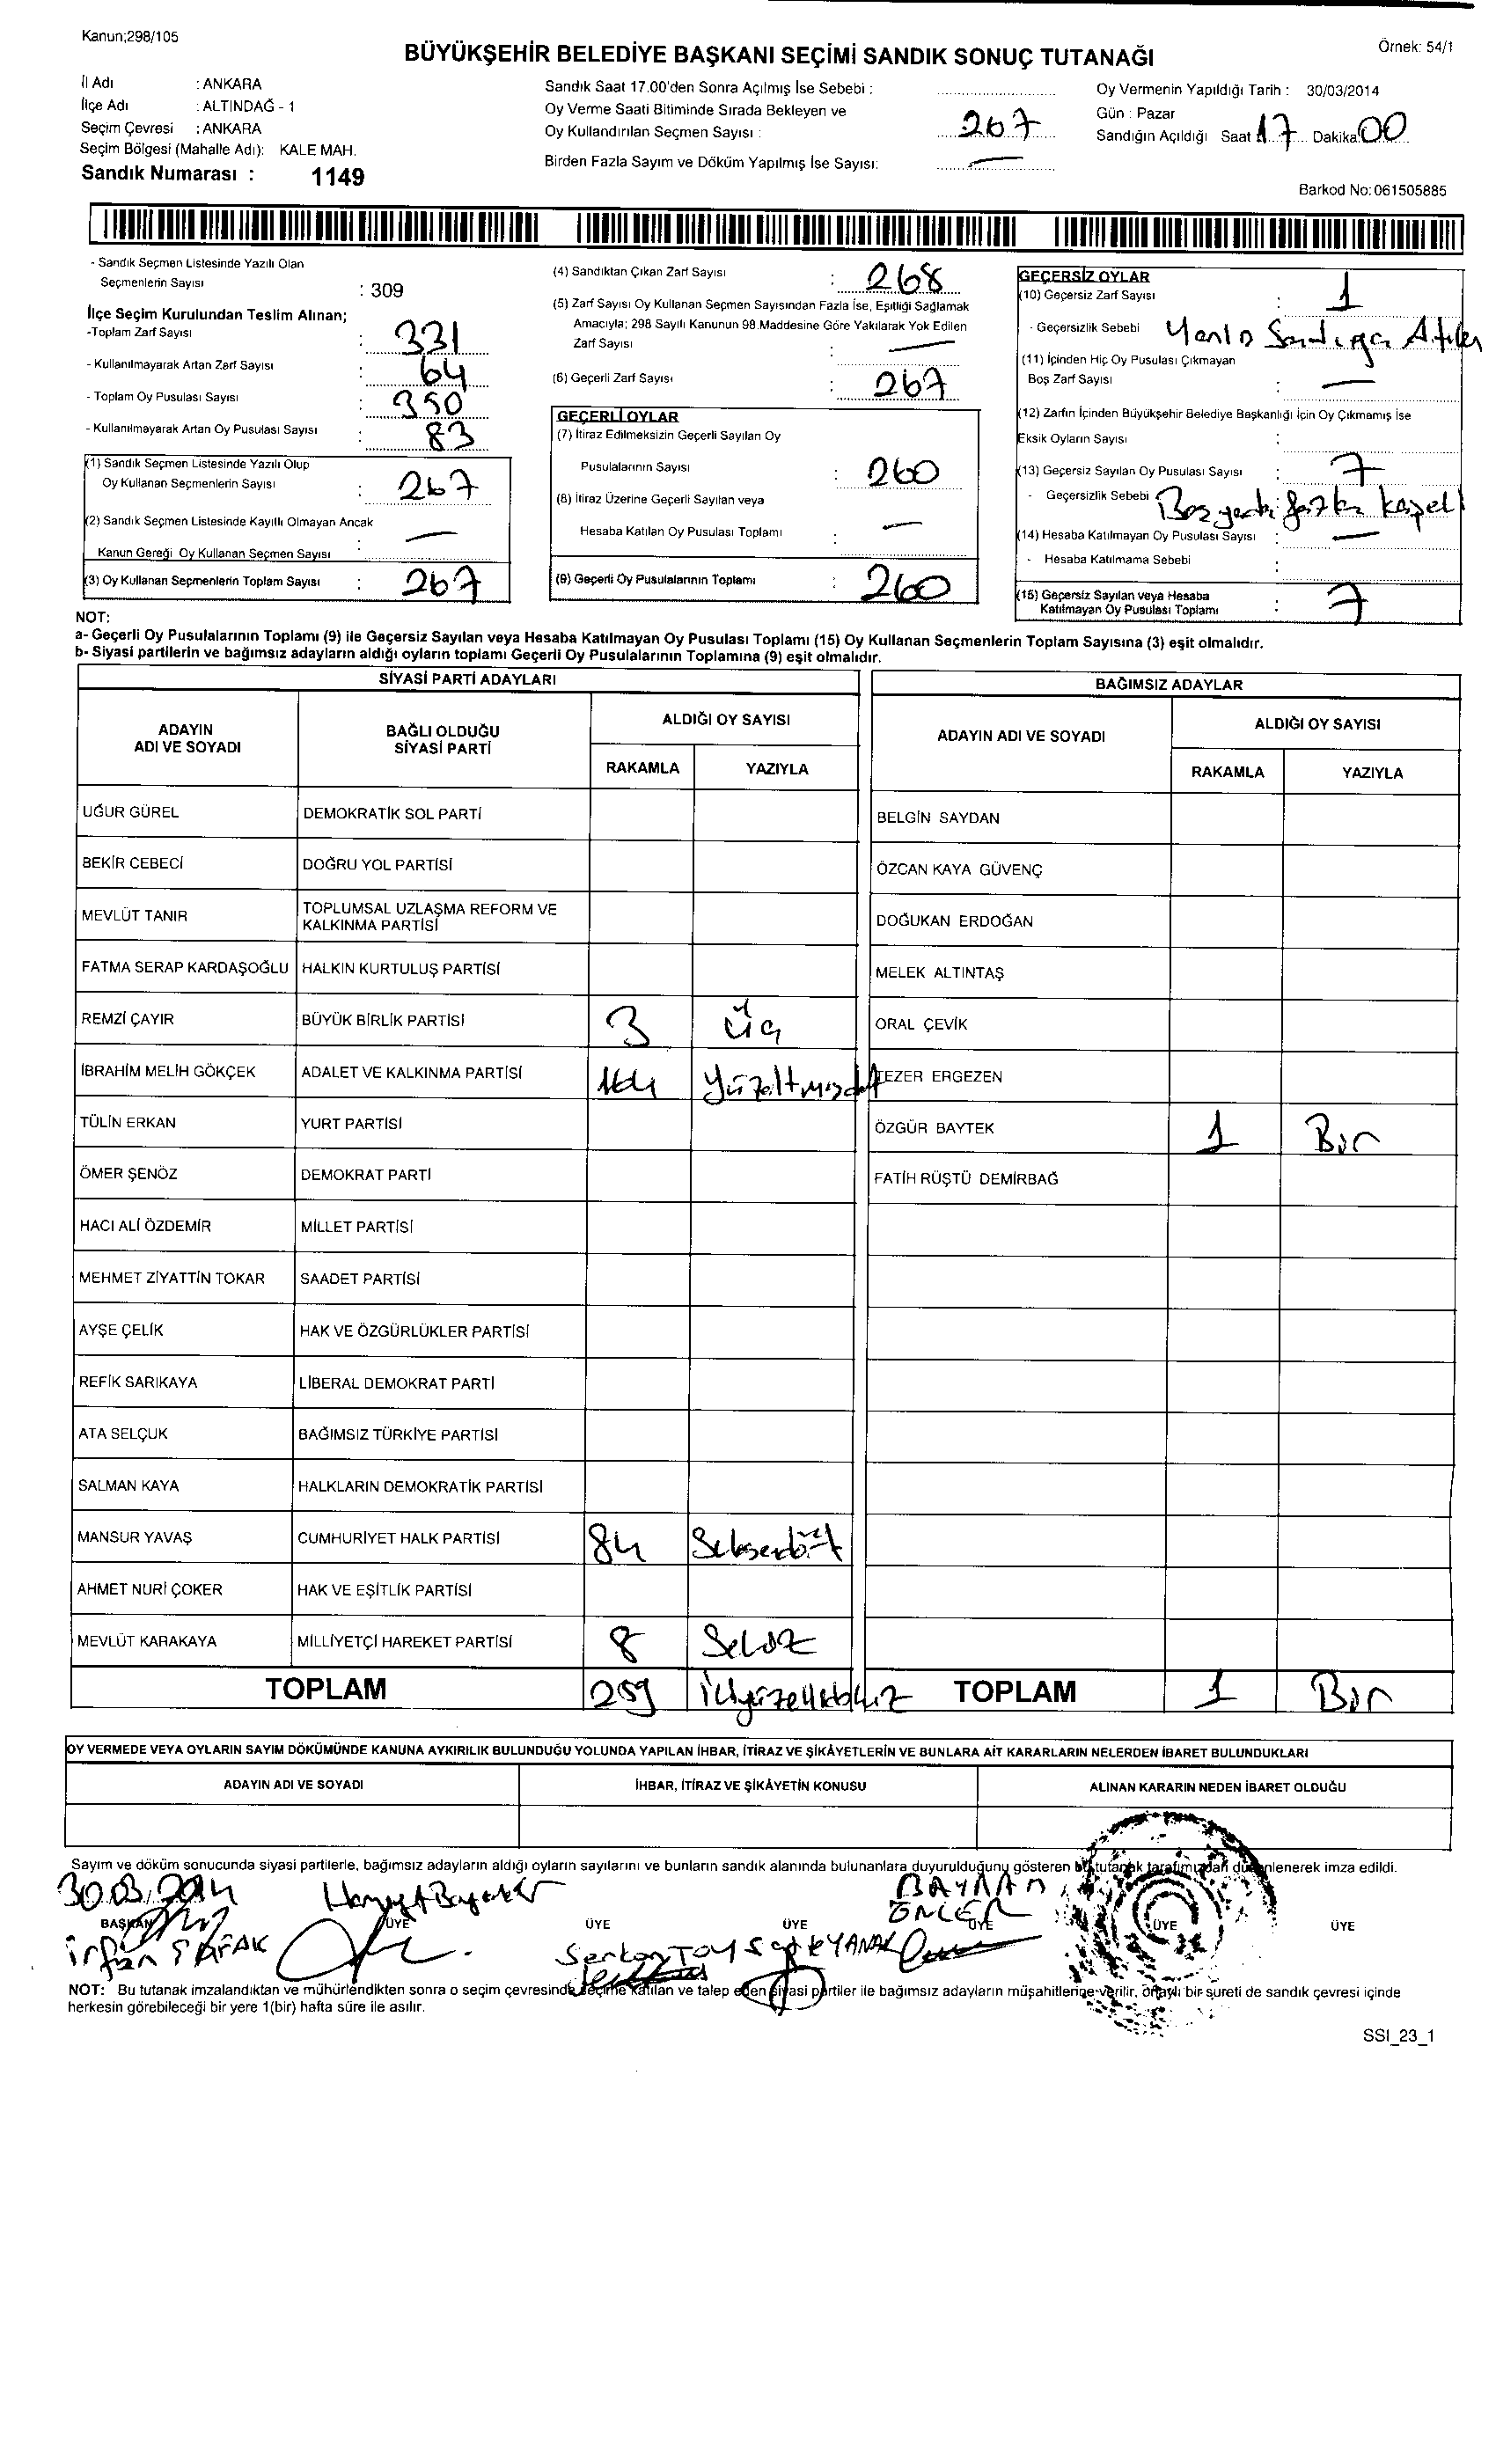 Kanun;298/105
Örnek: 54/1
BÜYÜKŞEHİR BELEDİYE BAŞKANI SEÇİMİ SANDIK SONUÇ TUTANAĞI
İl Adı : ANKARA
İlçe Adı : ALTINDAĞ - 1
Seçim Çevresi : ANKARA
Seçim Bölgesi (Mahalle Adı): KALE MAH.
Sandık Numarası : 1149
Sandık Saat 17.00'den Sonra Açılmış İse Sebebi :
Oy Verme Saati Bitiminde Sırada Bekleyen ve
Oy Kullandırılan Seçmen Sayısı : 267
Birden Fazla Sayım ve Döküm Yapılmış İse Sayısı: —
Oy Vermenin Yapıldığı Tarih : 30/03/2014
Gün : Pazar
Sandığın Açıldığı Saat 17 Dakika 00
Barkod No: 061505885
- Sandık Seçmen Listesinde Yazılı Olan
Seçmenlerin Sayısı : 309
İlçe Seçim Kurulundan Teslim Alınan;
-Toplam Zarf Sayısı : 331
- Kullanılmayarak Artan Zarf Sayısı : 64
- Toplam Oy Pusulası Sayısı : 350
- Kullanılmayarak Artan Oy Pusulası Sayısı : 83
(1) Sandık Seçmen Listesinde Yazılı Olup
Oy Kullanan Seçmenlerin Sayısı : 267
(2) Sandık Seçmen Listesinde Kayıtlı Olmayan Ancak
Kanun Gereği Oy Kullanan Seçmen Sayısı : —
(3) Oy Kullanan Seçmenlerin Toplam Sayısı : 267
(4) Sandıktan Çıkan Zarf Sayısı : 268
(5) Zarf Sayısı Oy Kullanan Seçmen Sayısından Fazla İse, Eşitliği Sağlamak
Amacıyla; 298 Sayılı Kanunun 98.Maddesine Göre Yakılarak Yok Edilen
Zarf Sayısı : —
(6) Geçerli Zarf Sayısı : 267
GEÇERLİ OYLAR
(7) İtiraz Edilmeksizin Geçerli Sayılan Oy
Pusulalarının Sayısı : 260
(8) İtiraz Üzerine Geçerli Sayılan veya
Hesaba Katılan Oy Pusulası Toplamı : —
(9) Geçerli Oy Pusulalarının Toplamı : 260
GEÇERSİZ OYLAR
(10) Geçersiz Zarf Sayısı : 1
- Geçersizlik Sebebi
(11) İçinden Hiç Oy Pusulası Çıkmayan
Boş Zarf Sayısı : —
(12) Zarfın İçinden Büyükşehir Belediye Başkanlığı İçin Oy Çıkmamış İse
Eksik Oyların Sayısı :
(13) Geçersiz Sayılan Oy Pusulası Sayısı : 7
- Geçersizlik Sebebi
(14) Hesaba Katılmayan Oy Pusulası Sayısı : —
- Hesaba Katılmama Sebebi :
(15) Geçersiz Sayılan veya Hesaba
Katılmayan Oy Pusulası Toplamı : 7
NOT:
a- Geçerli Oy Pusulalarının Toplamı (9) ile Geçersiz Sayılan veya Hesaba Katılmayan Oy Pusulası Toplamı (15) Oy Kullanan Seçmenlerin Toplam Sayısına (3) eşit olmalıdır.
b- Siyasi partilerin ve bağımsız adayların aldığı oyların toplamı Geçerli Oy Pusulalarının Toplamına (9) eşit olmalıdır.
SİYASİ PARTİ ADAYLARI
ADAYIN
ADI VE SOYADI
BAĞLI OLDUĞU
SİYASİ PARTİ
ALDIĞI OY SAYISI
RAKAMLA YAZIYLA
UĞUR GÜREL DEMOKRATİK SOL PARTİ
BEKİR CEBECİ DOĞRU YOL PARTİSİ
MEVLÜT TANIR TOPLUMSAL UZLAŞMA REFORM VE
KALKINMA PARTİSİ
FATMA SERAP KARDAŞOĞLU HALKIN KURTULUŞ PARTİSİ
REMZİ ÇAYIR BÜYÜK BİRLİK PARTİSİ 3 Üç
İBRAHİM MELİH GÖKÇEK ADALET VE KALKINMA PARTİSİ 164 Yüzaltmışdört
TÜLİN ERKAN YURT PARTİSİ
ÖMER ŞENÖZ DEMOKRAT PARTİ
HACI ALİ ÖZDEMİR MİLLET PARTİSİ
MEHMET ZİYATTİN TOKAR SAADET PARTİSİ
AYŞE ÇELİK HAK VE ÖZGÜRLÜKLER PARTİSİ
REFİK SARIKAYA LİBERAL DEMOKRAT PARTİ
ATA SELÇUK BAĞIMSIZ TÜRKİYE PARTİSİ
SALMAN KAYA HALKLARIN DEMOKRATİK PARTİSİ
MANSUR YAVAŞ CUMHURİYET HALK PARTİSİ 84 Seksendört
AHMET NURİ ÇOKER HAK VE EŞİTLİK PARTİSİ
MEVLÜT KARAKAYA MİLLİYETÇİ HAREKET PARTİSİ 8 Sekiz
TOPLAM 259 İkiyüzellidokuz
BAĞIMSIZ ADAYLAR
ADAYIN ADI VE SOYADI
ALDIĞI OY SAYISI
RAKAMLA YAZIYLA
BELGİN SAYDAN
ÖZCAN KAYA GÜVENÇ
DOĞUKAN ERDOĞAN
MELEK ALTINTAŞ
ORAL ÇEVİK
TEZER ERGEZEN
ÖZGÜR BAYTEK 1 Bir
FATİH RÜŞTÜ DEMİRBAĞ
TOPLAM 1 Bir
OY VERMEDE VEYA OYLARIN SAYIM DÖKÜMÜNDE KANUNA AYKIRILIK BULUNDUĞU YOLUNDA YAPILAN İHBAR, İTİRAZ VE ŞİKÂYETLERİN VE BUNLARA AİT KARARLARIN NELERDEN İBARET BULUNDUKLARI
ADAYIN ADI VE SOYADI İHBAR, İTİRAZ VE ŞİKÂYETİN KONUSU ALINAN KARARIN NEDEN İBARET OLDUĞU
Sayım ve döküm sonucunda siyasi partilerle, bağımsız adayların aldığı oyların sayılarını ve bunların sandık alanında bulunanlara duyurulduğunu gösteren bu tutanak tarafımızdan düzenlenerek imza edildi.
30.03.2014
BAYRAM
ÖNCER
BAŞKAN ÜYE ÜYE ÜYE ÜYE ÜYE ÜYE
irfan ŞAFAK
Serkan TOY
NOT: Bu tutanak imzalandıktan ve mühürlendikten sonra o seçim çevresinde seçime katılan ve talep eden siyasi partiler ile bağımsız adayların müşahitlerine verilir, onaylı bir sureti de sandık çevresi içinde
herkesin görebileceği bir yere 1(bir) hafta süre ile asılır.
SSI_23_1